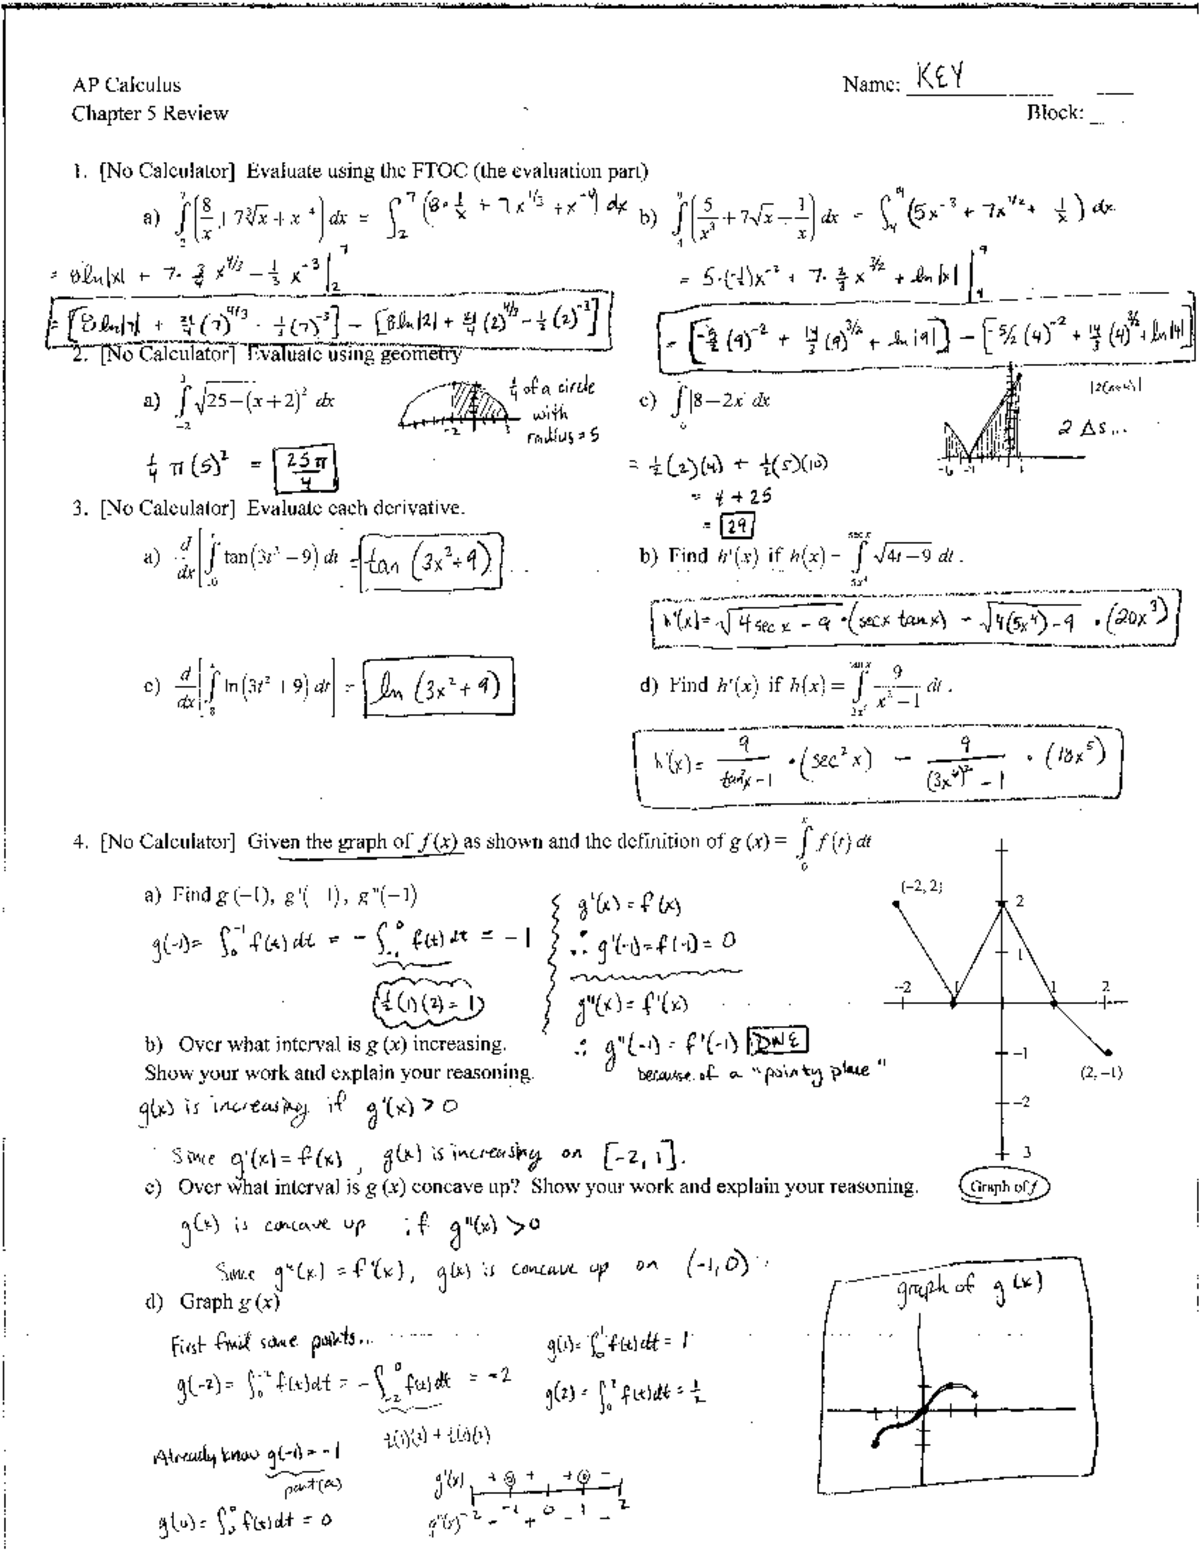 AP Calculus
Name: KEY
Chapter 5 Review
Block:
1. [No Calculator] Evaluate using the FTOC (the evaluation part)
a) ∫₂⁷ (8/x + 7∛x + x⁻⁴) dx = ∫₂⁷ (8·1/x + 7x^(1/3) + x⁻⁴) dx
= 8ln|x| + 7·3/4 x^(4/3) − 1/3 x⁻³ |₂⁷
= [8ln|7| + 21/4 (7)^(4/3) - 1/3 (7)⁻³] − [8ln|2| + 21/4 (2)^(4/3) − 1/3 (2)⁻³]
b) ∫₄⁹ (5/x³ + 7√x − 1/x) dx = ∫₄⁹ (5x⁻³ + 7x^(1/2) + 1/x) dx
= 5·(-1/2)x⁻² + 7·2/3 x^(3/2) + ln|x| |₄⁹
= [-5/2 (9)⁻² + 14/3 (9)^(3/2) + ln|9|] − [-5/2 (4)⁻² + 14/3 (4)^(3/2) + ln|4|]
2. [No Calculator] Evaluate using geometry
a) ∫₋₂³ √(25−(x+2)²) dx
1/4 of a circle
with
radius = 5
-2 3
1/4 π(5)² = 25π/4
c) ∫ |8−2x| dx
2 Δs...
-6 -4 1
= 1/2 (2)(4) + 1/2 (5)(10)
= 4 + 25
= 29
3. [No Calculator] Evaluate each derivative.
a) d/dx [∫ tan(3t²−9) dt = tan (3x²-9)
b) Find h'(x) if h(x) = ∫ √(4t−9) dt.
h'(x) = √(4secx − 9) · (secx tanx) − √(4(5x⁴)−9) · (20x³)
c) d/dx [∫ ln(3t²+9) dt] = ln (3x²+9)
d) Find h'(x) if h(x) = ∫ 9/(x²−1) dt.
h'(x) = 9/(tan²x−1) · (sec²x) − 9/((3x⁶)²−1) · (18x⁵)
4. [No Calculator] Given the graph of f(x) as shown and the definition of g(x) = ∫₀ˣ f(t) dt
a) Find g(−1), g'(−1), g''(−1)
g(-1) = ∫₀⁻¹ f(t) dt = −∫₋₁⁰ f(t) dt = −1
1/2 (1)(2) = 1
g'(x) = f(x)
∴ g'(-1) = f(-1) = 0
g"(x) = f'(x)
∴ g"(-1) = f'(-1) DNE
because of a "pointy place"
b) Over what interval is g(x) increasing.
Show your work and explain your reasoning.
g(x) is increasing if g'(x) > 0
Since g'(x) = f(x), g(x) is increasing on [-2, 1].
(−2, 2)
2
1
−2 -1 1 2
−1
(2, −1)
−2
3
Graph of f
c) Over what interval is g(x) concave up? Show your work and explain your reasoning.
g(x) is concave up if g"(x) > 0
Since g"(x) = f'(x), g(x) is concave up on (-1, 0)
d) Graph g(x)
First find some points...
g(-2) = ∫₀⁻² f(t)dt = −∫₋₂⁰ f(t)dt = −2
Already know g(-1) = -1
part (a)
g(0) = ∫₀⁰ f(t)dt = 0
g(1) = ∫₀¹ f(t)dt = 1
g(2) = ∫₀² f(t)dt = 1/2
g'(x) + 0 + + 0 −
-2 -1 0 1 2
g"(x) − + − −
graph of g(x)